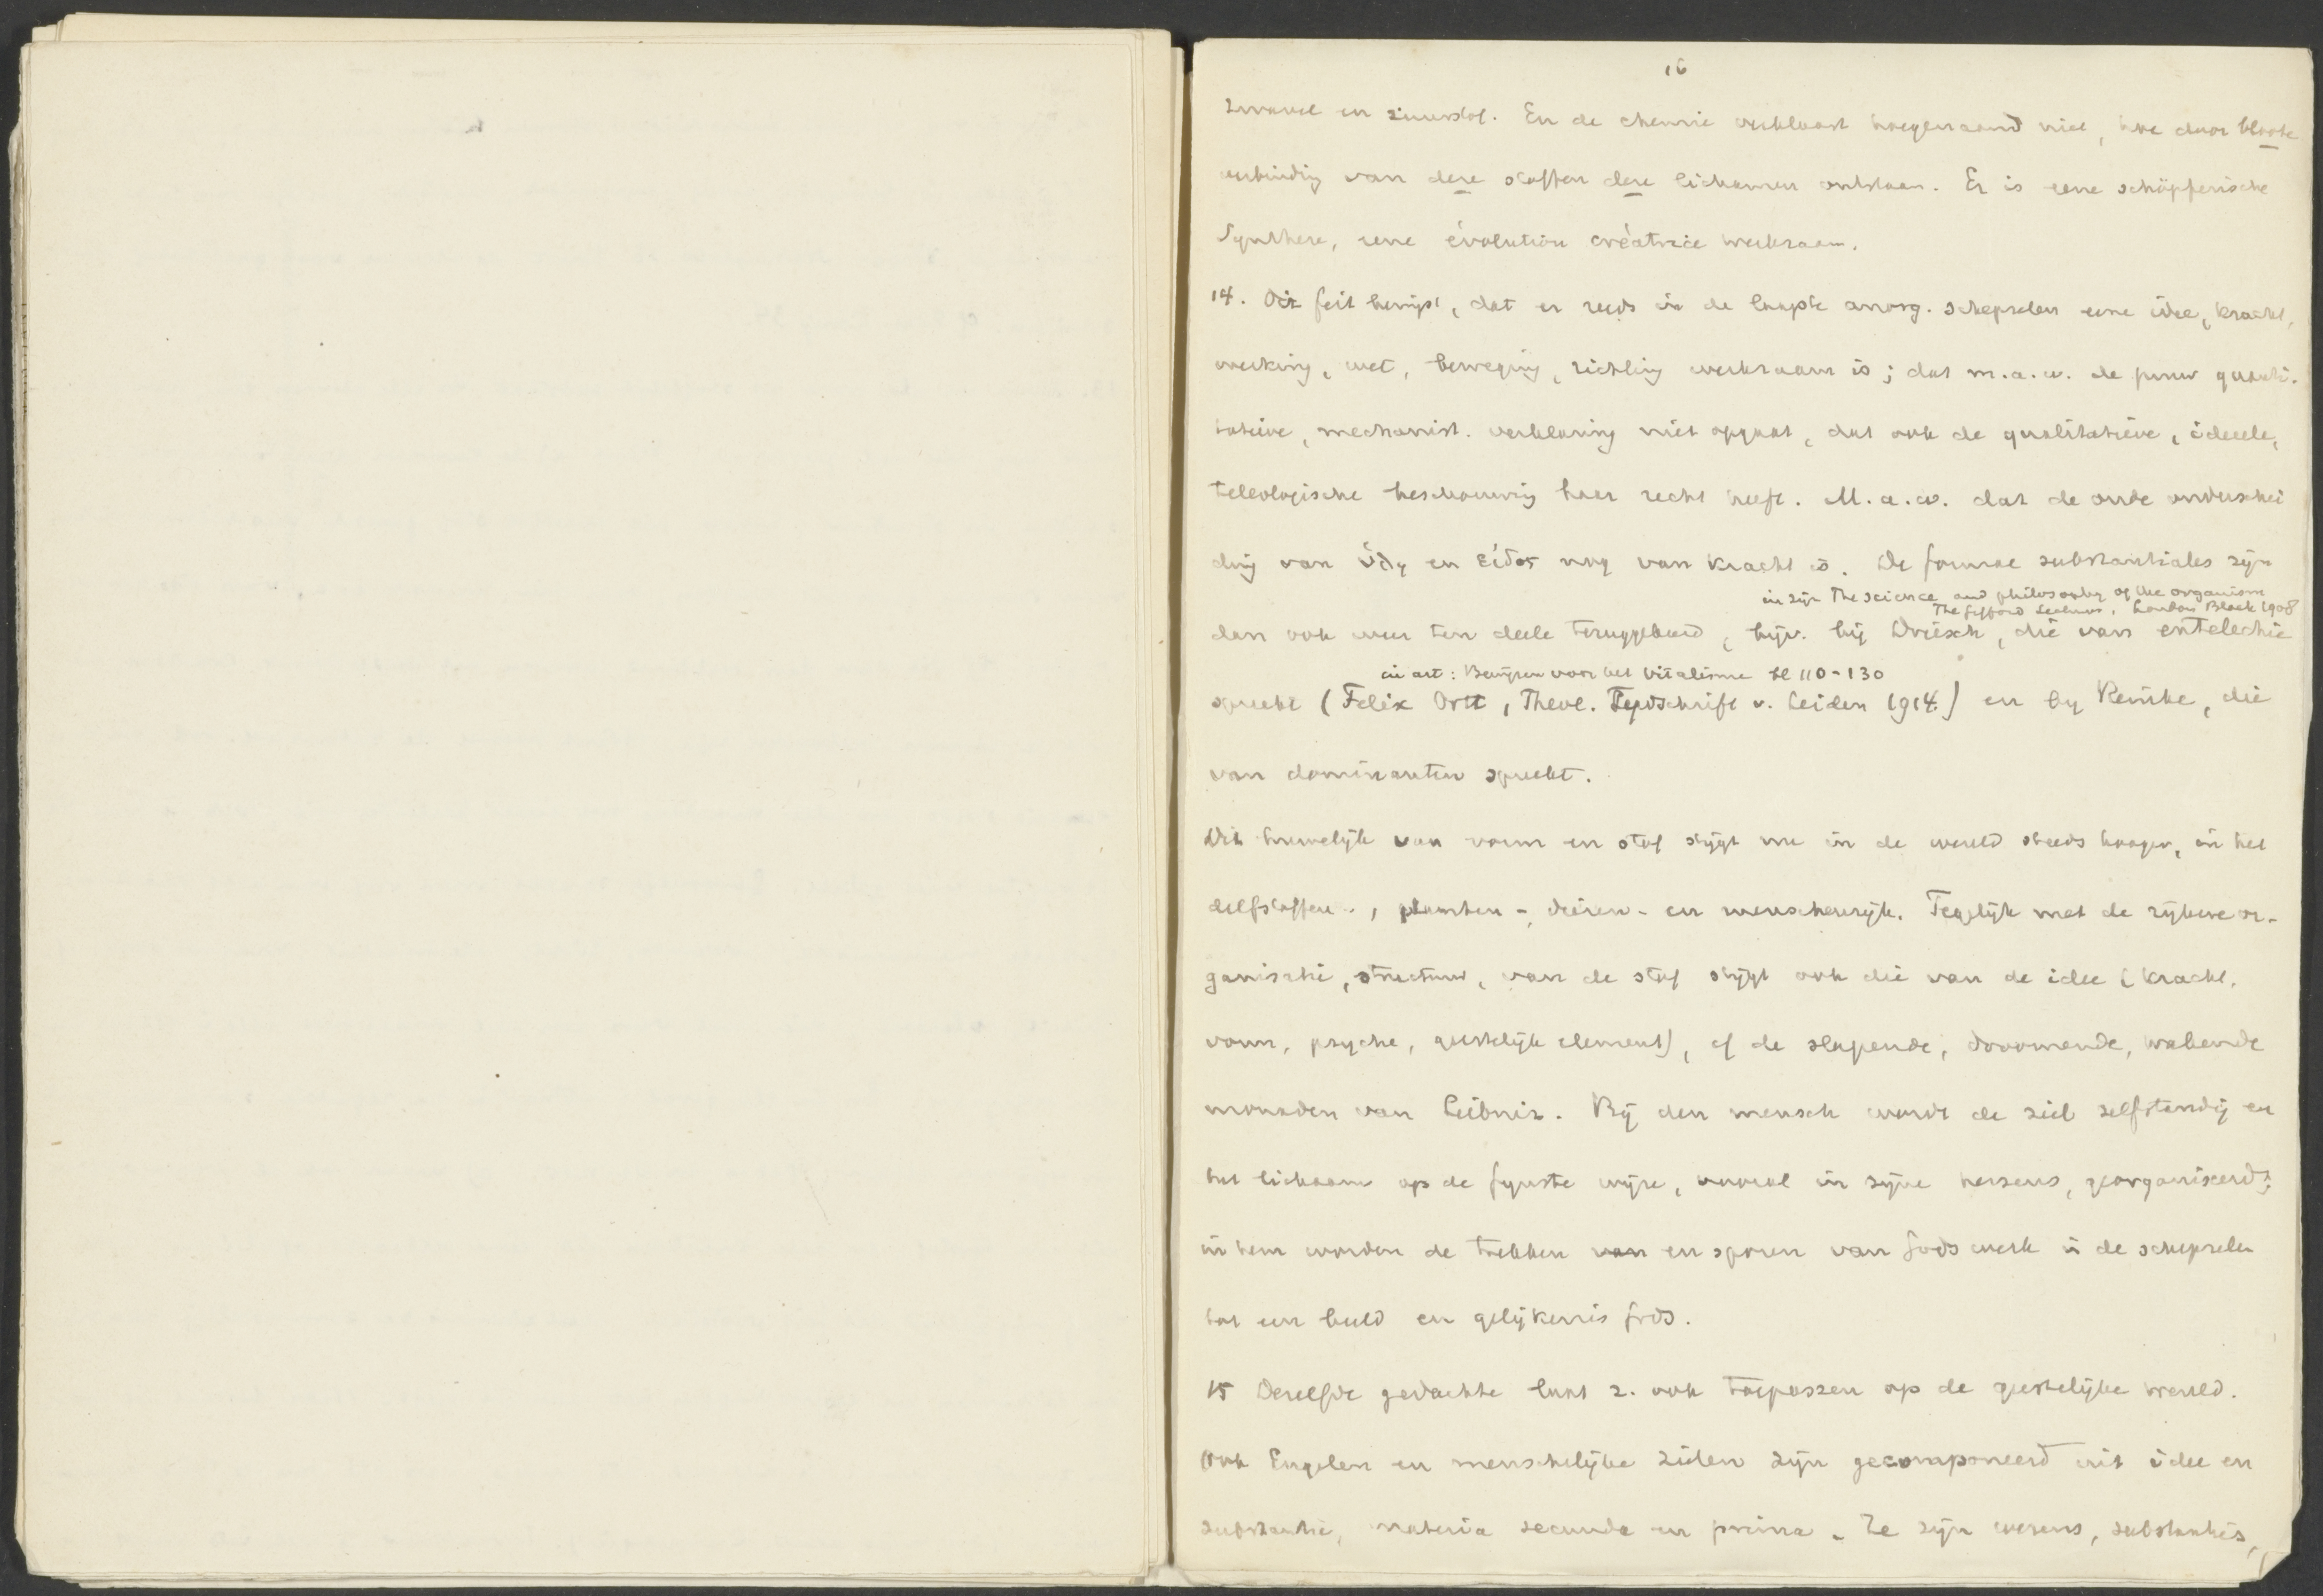 16
zwavel en zuurstof. En de chemie verklaart hoegenaamd niet, hoe door bloote
verbinding van deze stoffen deze lichamen ontstaan. Er is eene schöpferische
Synthese, eene évolution créatrice werkzaam.
14. Dit feit bewijst, dat er reeds in de laagste anorg. schepselen eene idee, kracht,
werking, wet, beweging, richting werkzaam is; dat m.a.w. de puur quanti-
tatieve, mechanist. verklaring niet opgaat, dat ook de qualitatieve, ideeele,
teleologische beschouwing haar recht heeft. M.a.w. dat de oude onderschei
ding van ὕλη en εἶδος nog van kracht is. De formae substantiales zijn
in zijn The science and philosophy of the organism
The Gifford Lectures, London Black 1908
dan ook weer ten deele teruggekeerd, bijv. bij Driesch, die van entelechie
in art: Bewijzen voor het vitalisme bl 110-130
spreekt (Felix Ortt, Theol. Tijdschrift v. Leiden 1914) en by Reinke, die
van dominanten spreekt.
Dit huwelijk van vorm en stof stijgt nu in de wereld steeds hooger, in het
delfstoffen-, planten-, dieren- en menschenrijk. Tegelijk met de rijkere or-
ganisatie, structuur, van de stof stijgt ook die van de idee (kracht,
vorm, psyche, geestelijk element), cf de slapende, droomende, wakende
monaden van Leibniz. Bij den mensch wordt de ziel zelfstandig en
het lichaam op de fijnste wijze, vooral in zijne hersens, georganiseerd;
in hem worden de trekken van en sporen van Gods werk in de schepselen
tot een beeld en gelijkenis Gods.
15 Dezelfde gedachte laat z. ook toepassen op de geestelijke wereld.
Ook Engelen en menschelijke zielen zijn gecomponeerd uit idee en
substantie, materia secunda en prima. Ze zijn wezens, substanties,